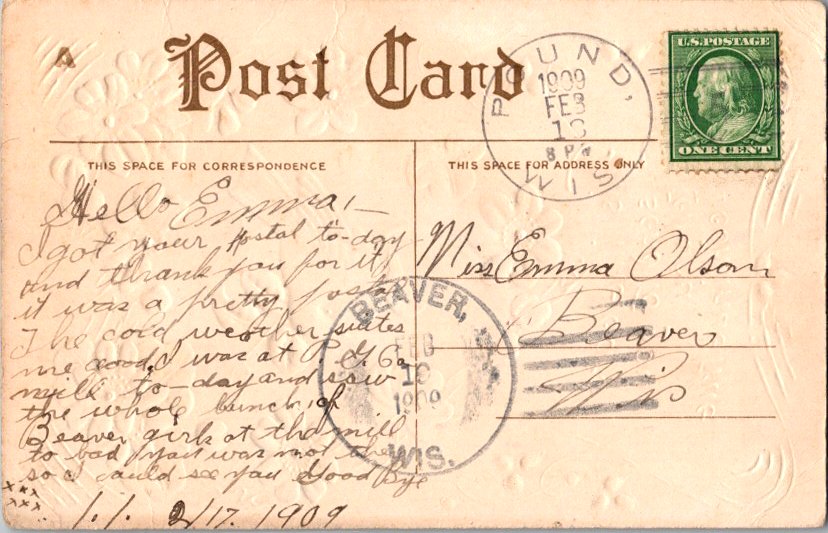 A
Post Card
POUND,
1909
FEB
8 P M
WIS
U.S. POSTAGE
ONE CENT
THIS SPACE FOR CORRESPONDENCE
THIS SPACE FOR ADDRESS ONLY
Hello Emma,—
I got your postal to-day
and thank you for it
it was a pretty postal
The cold weather suites
me good, I was at P. G. Co
mill to-day and saw
the whole bunch of
Beaver girls at the mill
to bad you was not there
so I could see you Good Bye
xxx
xxx
2/17. 1909
Miss Emma Olson
Beaver
Wis
BEAVER,
FEB
18
1909
WIS.